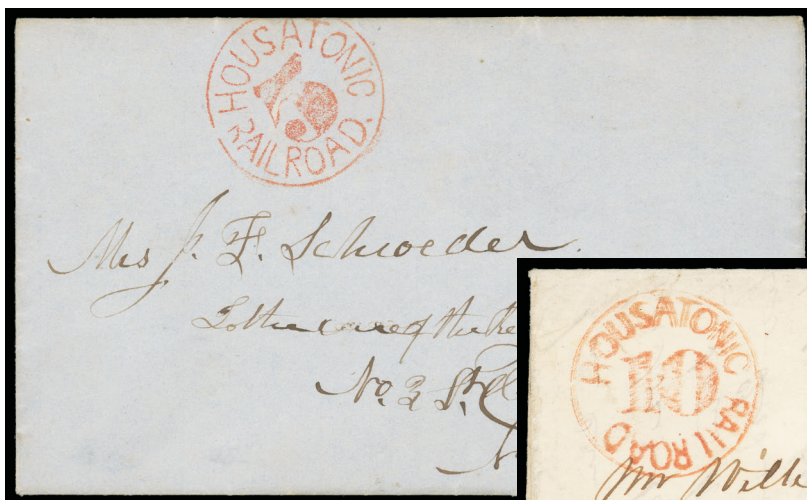 HOUSATONIC
RAILROAD.
Mrs J. F. Schroeder.
To the care of the Re
No.
HOUSATONIC RAILROAD
10